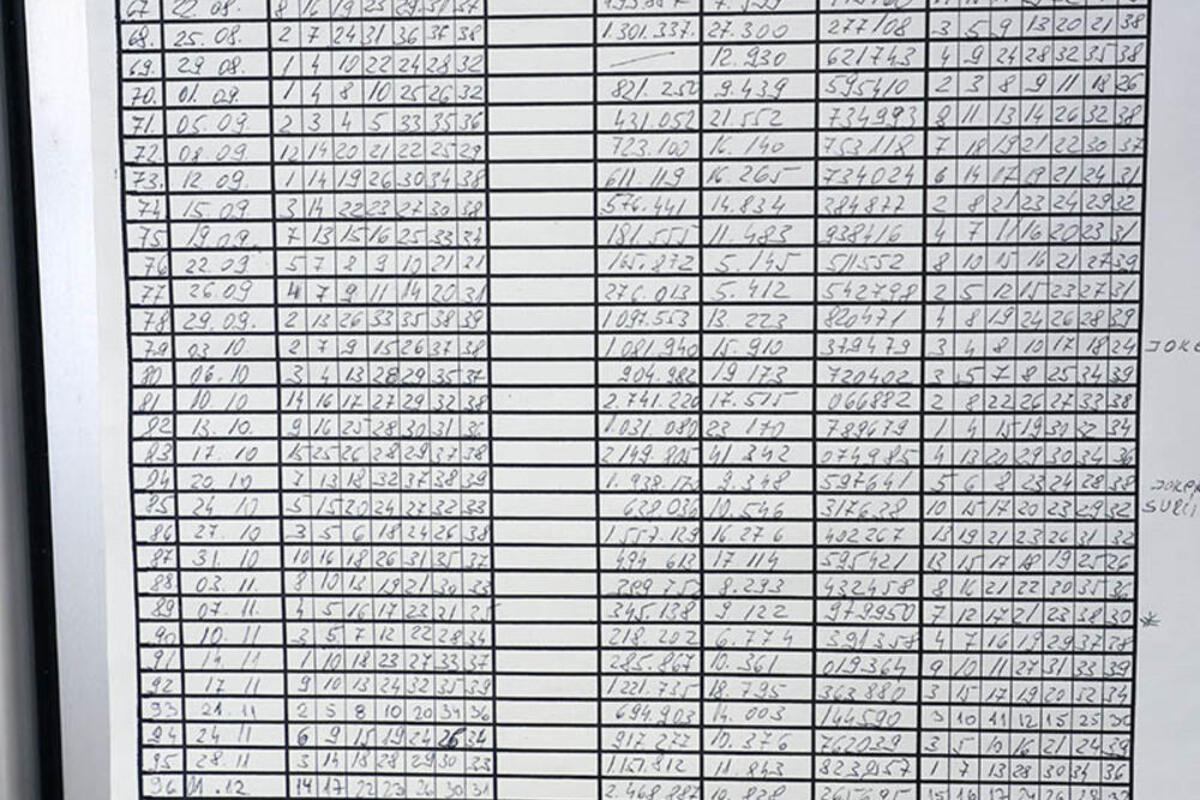 68. 25.08. 2 7 24 31 36 37 38 1.301.337. 27.300 277108 3 5 9 13 20 21 38
69. 29 08. 1 4 10 22 24 28 32 12.930 621743 4 9 24 28 32 35 38
70. 01.09. 1 4 8 10 25 26 32 821.250 9.439 595410 2 3 8 9 11 18 26
71. 05.09 2 3 4 5 33 35 36 431.052 21.552 734993 8 11 13 14 26 32 38
72 08.09. 12 14 20 21 22 25 29 723.100 16.140 753118 7 18 19 21 22 30 37
73. 12 09. 1 14 19 26 30 34 38 611.119 16.265 734024 6 14 17 19 21 24 31
74 15.09 3 14 22 23 27 30 38 576.441 14.834 384877 2 8 21 23 24 29 32
75 19.09. 7 13 15 16 25 33 37 181.555 11.483 938416 4 7 11 16 20 23 31
76 22.09 5 7 8 9 10 21 165.872 5.145 511552 8 10 15 16 21 27 39
77 26.09 4 7 9 11 14 20 31 276.013 5.412 542798 2 5 12 15 23 27 31
78 29.09. 2 13 26 33 35 38 39 1097.553 13.223 820471 4 8 19 24 26 28 39
79 03 10 2 7 9 15 26 37 38 1081.940 15.910 379479 3 4 8 10 17 18 24
80 06.10 3 4 13 28 29 35 37 904.982 19173 720402 3 5 7 8 25 34 39
81 10.10 14 16 17 27 29 32 38 2.741.220 17.515 066882 2 8 22 26 27 33 38
82 13.10. 9 16 25 28 30 31 36 1.031.080 23 170 789679 1 4 15 19 30 32 34
83 17.10 15 25 26 28 29 37 38 2149.805 41342 074985 4 13 20 29 30 34 36
20 10 7 13 18 32 37 38 39 9.348 597641 5 6 8 23 24 28 38
85 24 10 5 15 20 24 27 32 33 628036 10.546 317628 10 15 17 20 23 29 32
86 27. 10 3 5 6 18 24 26 38 1.557.129 16.276 402267 13 19 21 23 26 31 32
87 31. 10 10 16 18 26 31 35 37 494 613 17 114 595421 13 15 17 18 19 25 26
88 03 11. 8 10 13 19 21 30 33 8.293 432458 8 16 21 22 30 35 36
89 07. 11. 4 5 16 17 23 21 25 345.138 9 122 979950 7 12 17 21 23 38 30 *
90 10. 11 3 5 7 12 22 28 34 218.202 6.774 391358 4 7 16 19 29 37 28
91 14 11 1 10 18 23 27 33 37 285.867 10.361 019364 9 10 11 27 31 33 39
92 17 11 9 10 13 24 32 35 39 1221.735 18.795 363880 3 15 17 19 20 32 34
93 21.11 2 5 8 10 20 34 36 694.903 14.003 144590 3 10 11 12 15 25 30
94 24 11 6 9 15 19 24 26 34 917.277 10.376 762039 3 5 10 16 21 24 39
95 28.11 3 14 18 28 29 30 33 1.151.812 11.843 823957 1 7 13 28 30 34 36
96 01.12 14 17 22 23 26 30 31 2.468.887 10.828 265695